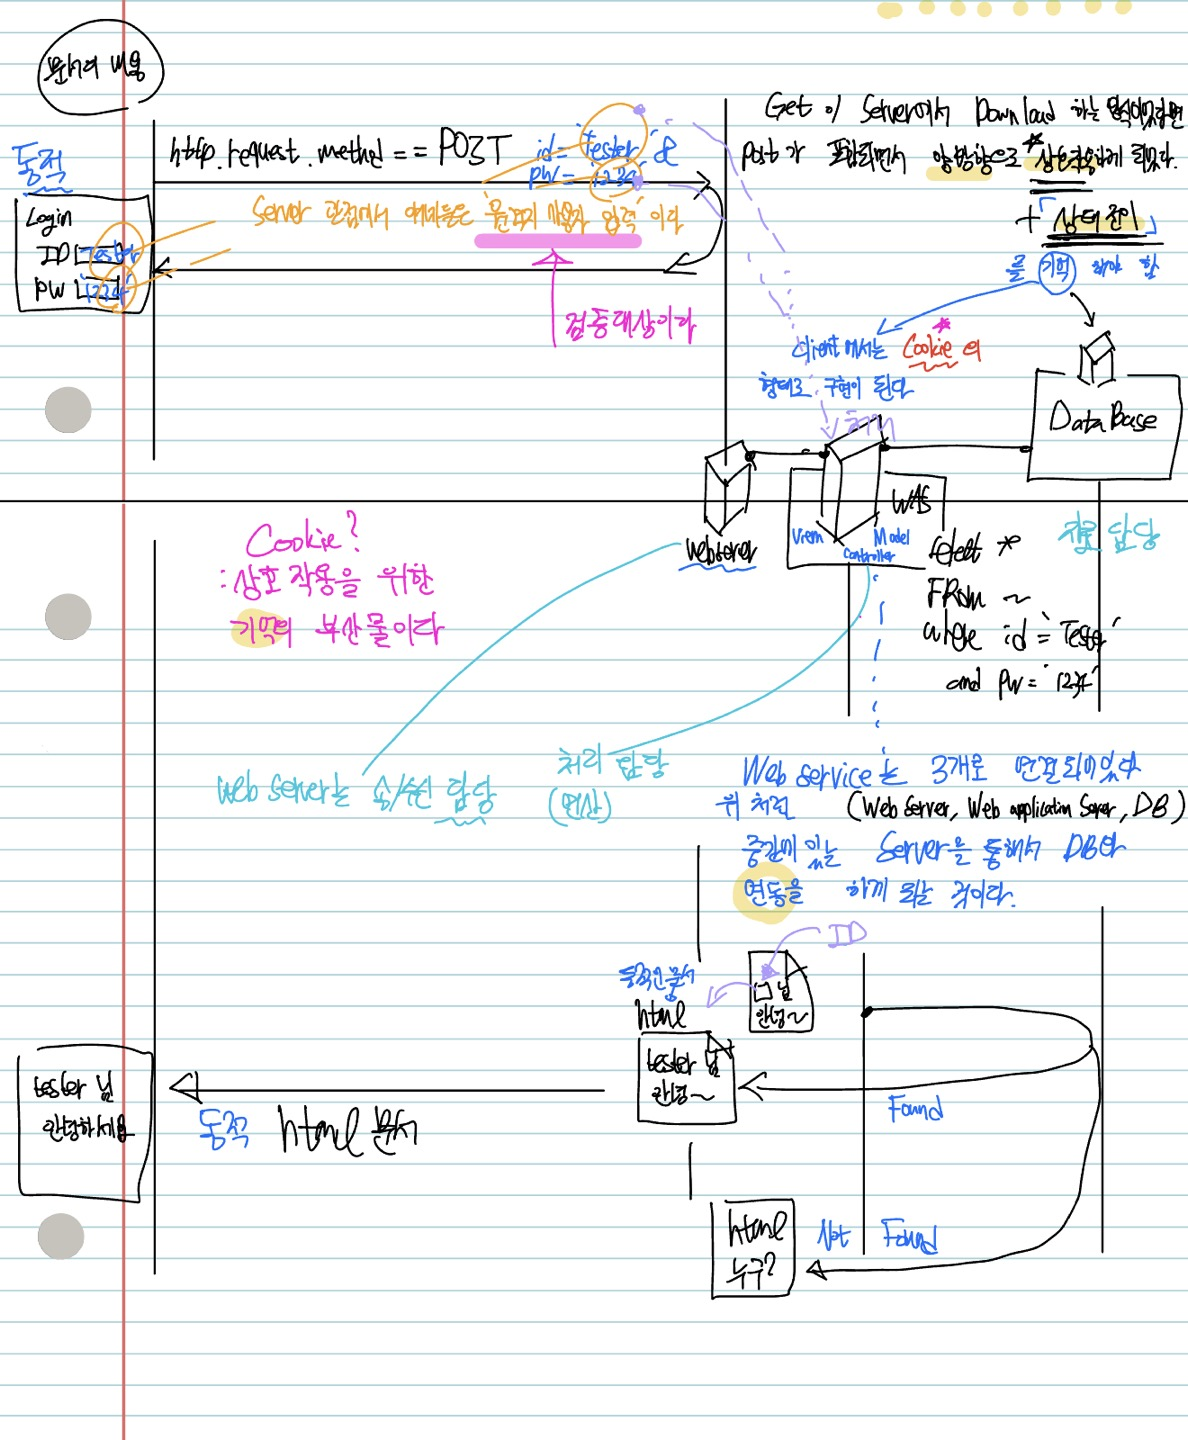 문서의 내용
동적
Login
ID Tester
PW '1234'
http.request.method == POST id='Tester' &
PW='1234'
Server 관점에서 얘네들은 '원격지 사용자 입력' 이다
검증대상이다
Get 이 Server에서 Download 하는 방식이었다면
Post가 포함되면서 양방향으로 상호작용하게 되었다.
+ 「상태 전이」
를 기억 해야 함
Client 에서는 Cookie 의
형태로 구현이 된다
처리
DataBase
WAS
View Model
Controller
webserver
자료 담당
Select *
FRom ~
where id='Tester'
and PW='1234'
Cookie?
: 상호 작용을 위한
기억의 부산물이다
Web Server는 송/수신 담당
처리 담당
(연산)
Web service는 3개로 연결되어있다
위 처럼 (Web Server, Web application Server, DB)
중간에 있는 Server을 통해서 DB와
연동을 하게 되는 것이다.
ID
ㅁ님
안녕~
동적인 문서
html
tester 님
안녕~
Found
tester 님
안녕하세요
동적 html 문서
html
누구?
Not Found